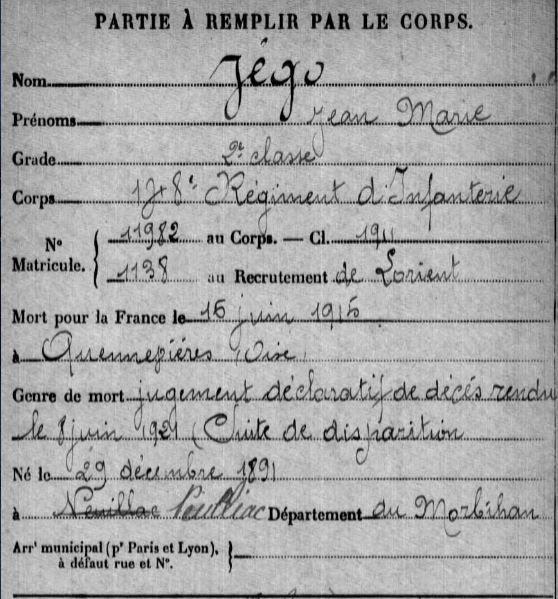 PARTIE À REMPLIR PAR LE CORPS.
Nom Jégo
Prénoms Jean Marie
Grade 2e classe
Corps 148e Régiment d'Infanterie
N° Matricule. { 11982 au Corps. — Cl. 1911
1138 au Recrutement de Lorient
Mort pour la France le 16 juin 1915
à Quennevières, Oise,
Genre de mort jugement déclaratif de décès rendu
le 8 juin 1921 (Suite de disparition
Né le 29 décembre 1891
à Neuillac Département du Morbihan
Arrt municipal (pr Paris et Lyon), }
à défaut rue et N°.